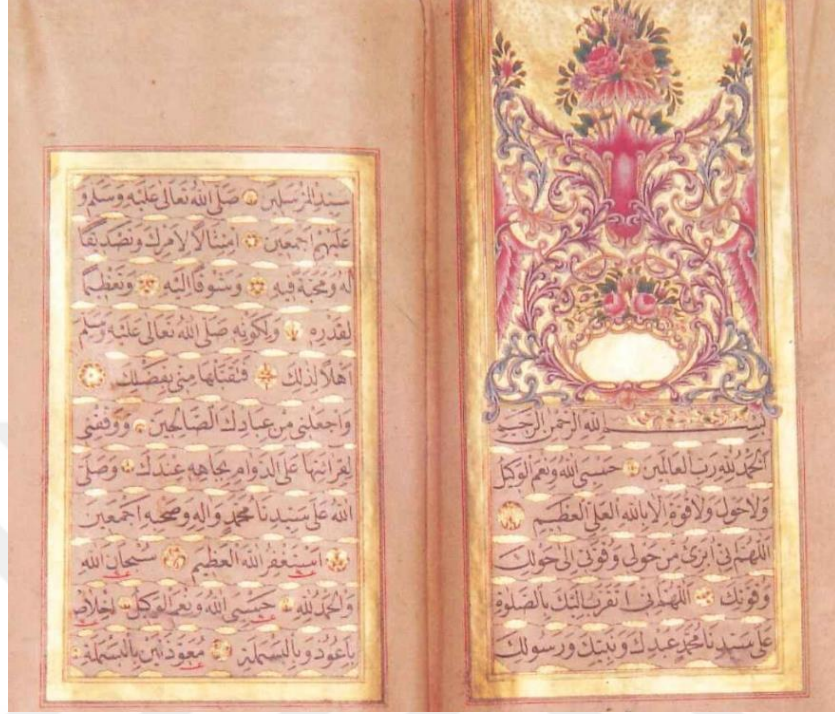 بسم الله الرحمن الرحيم
الحمد لله رب العالمين حسبي الله ونعم الوكيل
ولا حول ولا قوة الا بالله العلي العظيم
اللهم اني ابرئ من حولي وقوتي الى حولك
وقوتك اللهم اني اتقرب اليك بالصلوة
على سيدنا محمد عبدك ونبيك ورسولك
سيد المرسلين صلى الله تعالى عليه وسلم و
عليهم اجمعين امتثالا لامرك وتصديقا
له ومحبة فيه وشوقا اليه وتعظيما
لقدره ولكونه صلى الله تعالى عليه وسلم
اهلا لذلك فتقبلها مني بفضلك
واجعلني من عبادك الصالحين ووفقني
لقرائتها على الدوام بجاهه عندك وصلى
الله على سيدنا محمد واله وصحبه اجمعين
استغفر الله العظيم سبحان الله
والحمد لله حسبي الله ونعم الوكيل اخلاص
باعوذ وبالبسملة معوذتين بالبسملة